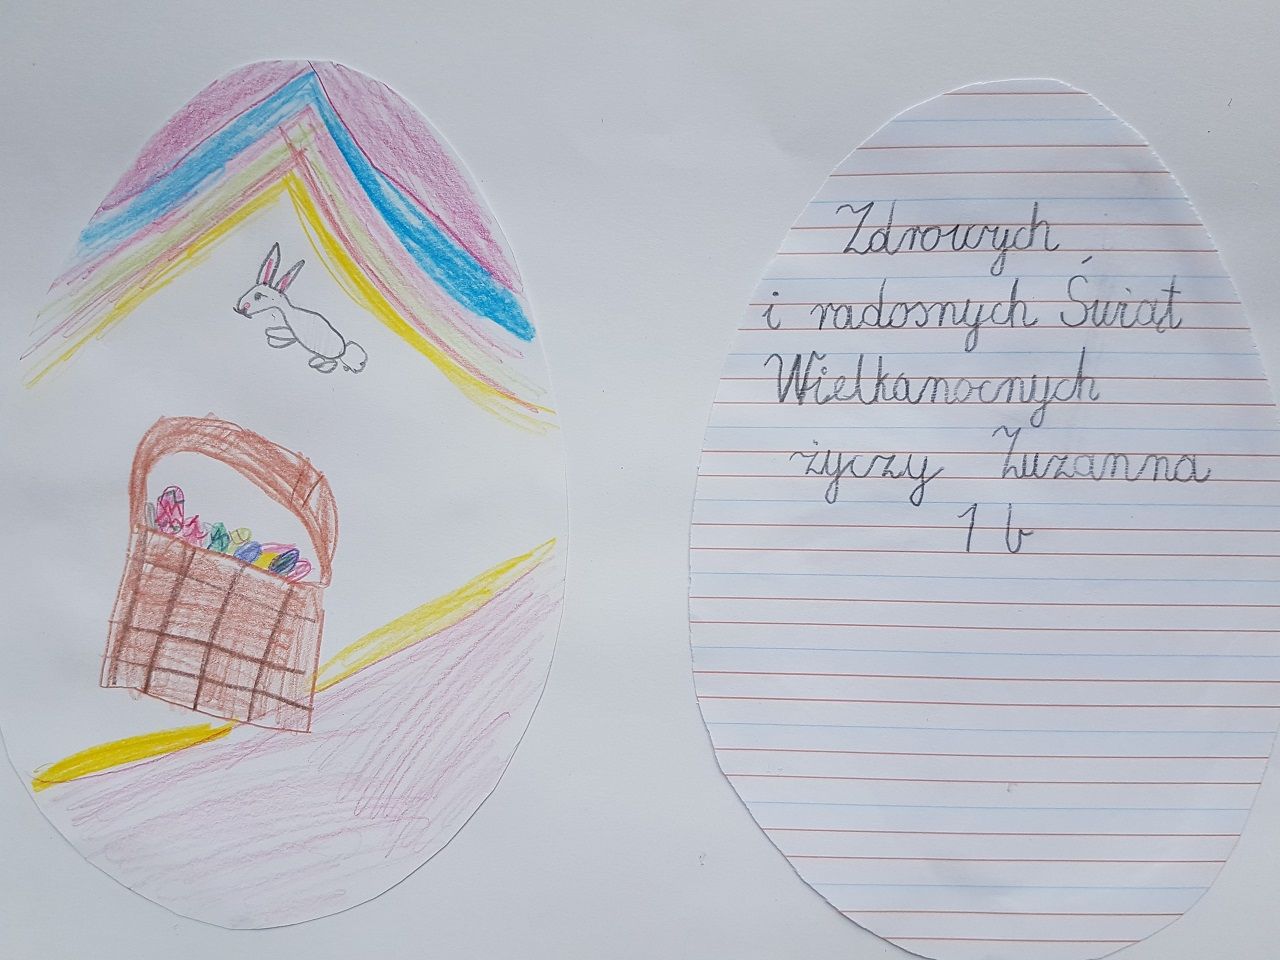 Zdrowych
i radosnych Świąt
Wielkanocnych
życzy Zuzanna
1 b